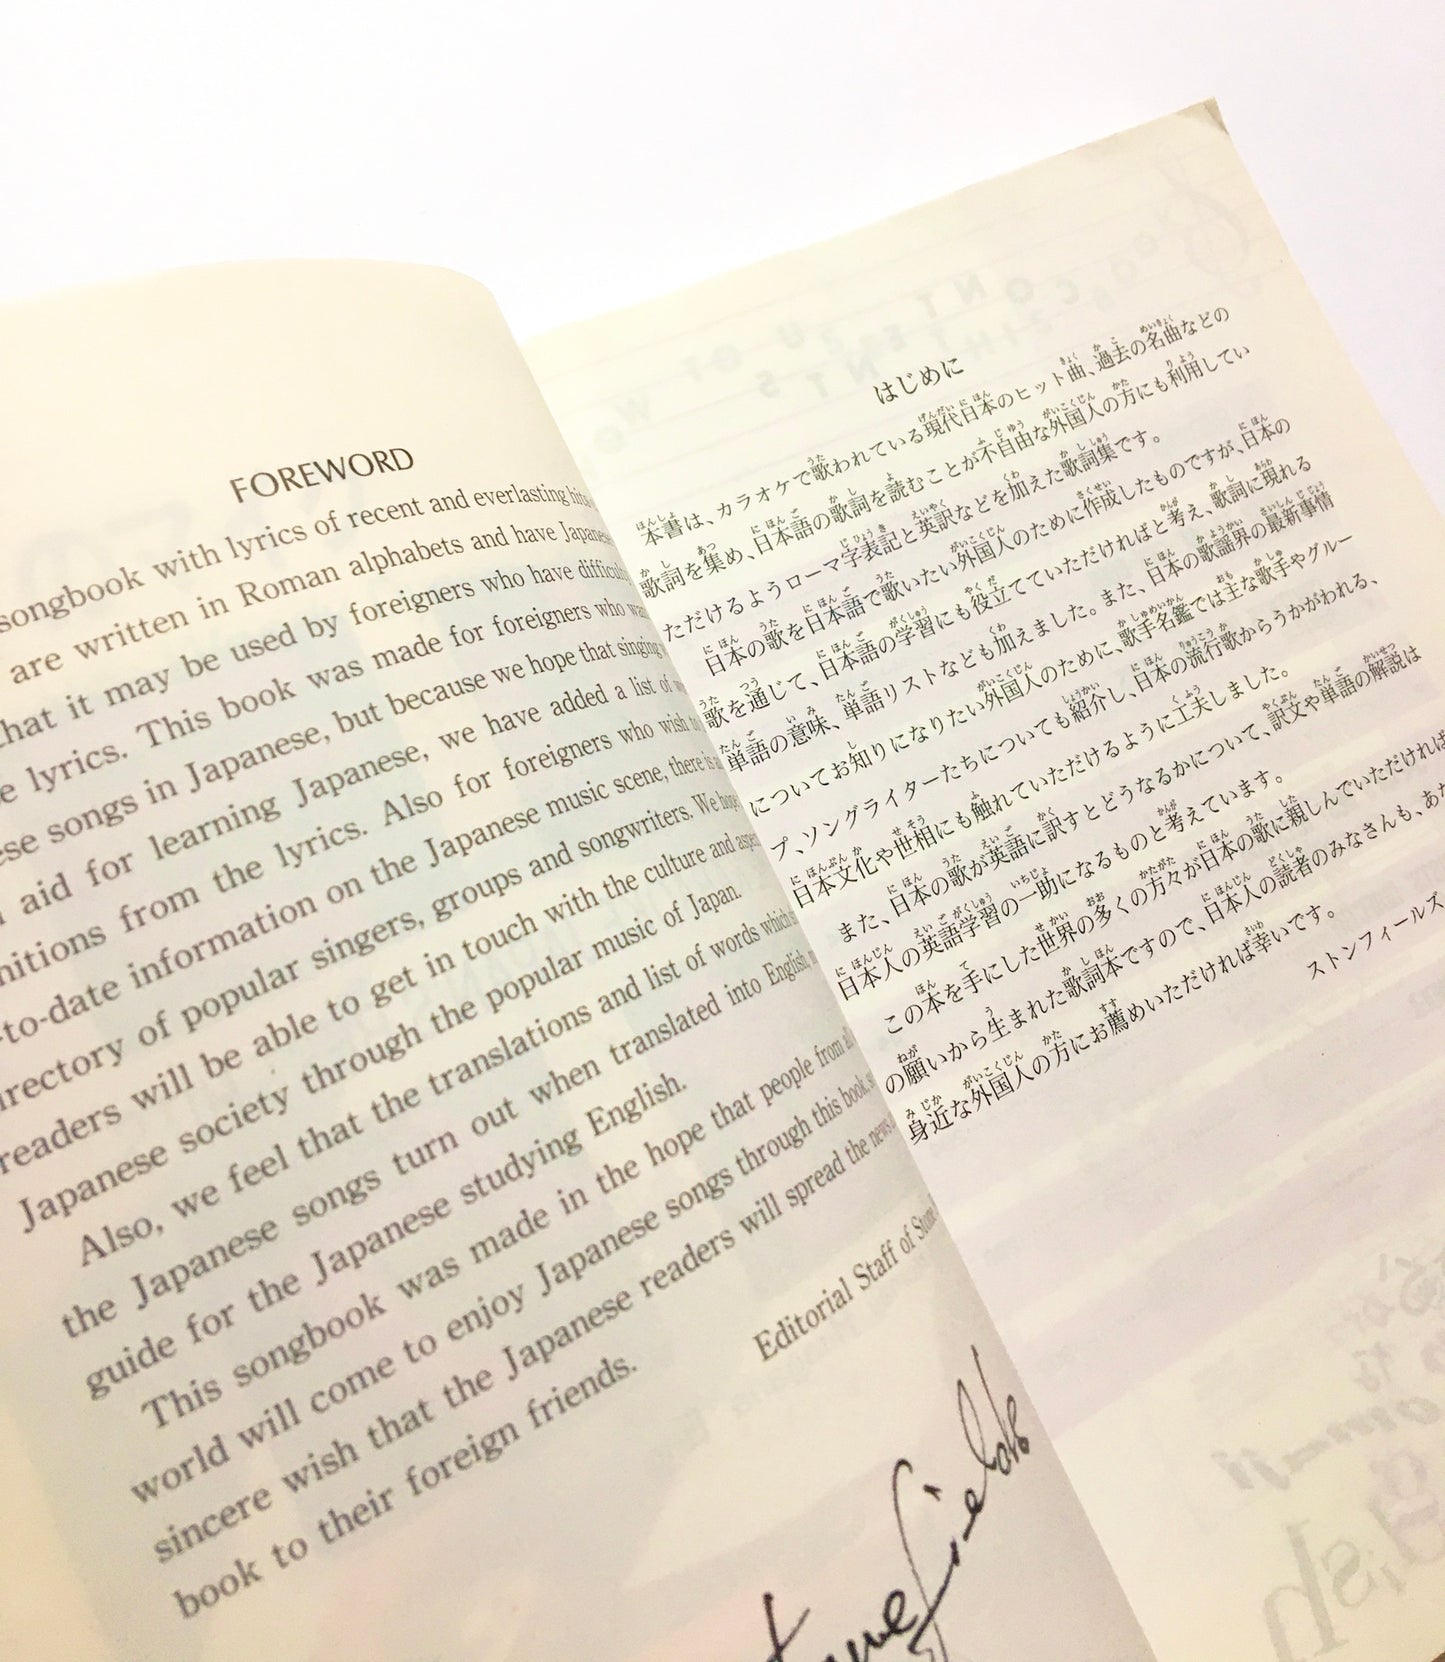 FOREWORD
songbook with lyrics of recent and everlasting hits
are written in Roman alphabets and have Japanese
that it may be used by foreigners who have difficulty
lyrics. This book was made for foreigners who
songs in Japanese, but because we hope that singing
aid for learning Japanese, we have added a list of
from the lyrics. Also for foreigners who wish
-to-date information on the Japanese music scene, there is
of popular singers, groups and songwriters. We hope
readers will be able to get in touch with the culture and
Japanese society through the popular music of Japan.
Also, we feel that the translations and list of words which
the Japanese songs turn out when translated into English,
guide for the Japanese studying English.
This songbook was made in the hope that people from all
world will come to enjoy Japanese songs through this book,
sincere wish that the Japanese readers will spread the news
book to their foreign friends.
Editorial Staff of
はじめに
本書は、カラオケで歌われている現代日本のヒット曲、過去の名曲などの
歌詞を集め、日本語の歌詞を読むことが不自由な外国人の方にも利用してい
ただけるようローマ字表記と英訳などを加えた歌詞集です。
日本の歌を日本語で歌いたい外国人のために作成したものですが、日本の
歌を通じて、日本語の学習にも役立てていただければと考え、歌詞に現れる
単語の意味、単語リストなども加えました。また、日本の歌謡界の最新事情
についてお知りになりたい外国人のために、歌手名鑑では主な歌手やグルー
プ、ソングライターたちについても紹介し、日本の流行歌からうかがわれる、
日本文化や世相にも触れていただけるように工夫しました。
また、日本の歌が英語に訳すとどうなるかについて、訳文や単語の解説は
日本人の英語学習の一助になるものと考えています。
この本を手にした世界の多くの方々が日本の歌に親しんでいただければ
の願いから生まれた歌詞本ですので、日本人の読者のみなさんも、
身近な外国人の方にお薦めいただければ幸いです。
ストンフィールズ